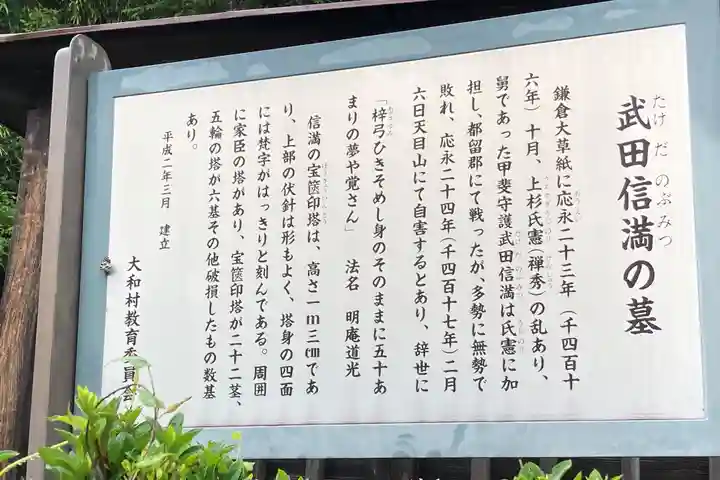 武田信満の墓
たけだのぶみつ
鎌倉大草紙に応永二十三年(千四百十
六年)十月、上杉氏憲(禅秀)の乱あり、
舅であった甲斐守護武田信満は氏憲に加
担し、都留郡にて戦ったが、多勢に無勢で
敗れ、応永二十四年(千四百十七年)二月
六日天目山にて自害するとあり、辞世に
「梓弓ひきそめし身のそのままに五十あ
まりの夢や覚さん」 法名 明庵道光
信満の宝篋印塔は、高さ一m三cmであ
り、上部の伏針は形もよく、塔身の四面
には梵字がはっきりと刻んである。周囲
に家臣の塔があり、宝篋印塔が二十二茎、
五輪の塔が六基その他破損したもの数基
あり。
平成二年三月 建立
大和村教育委員会